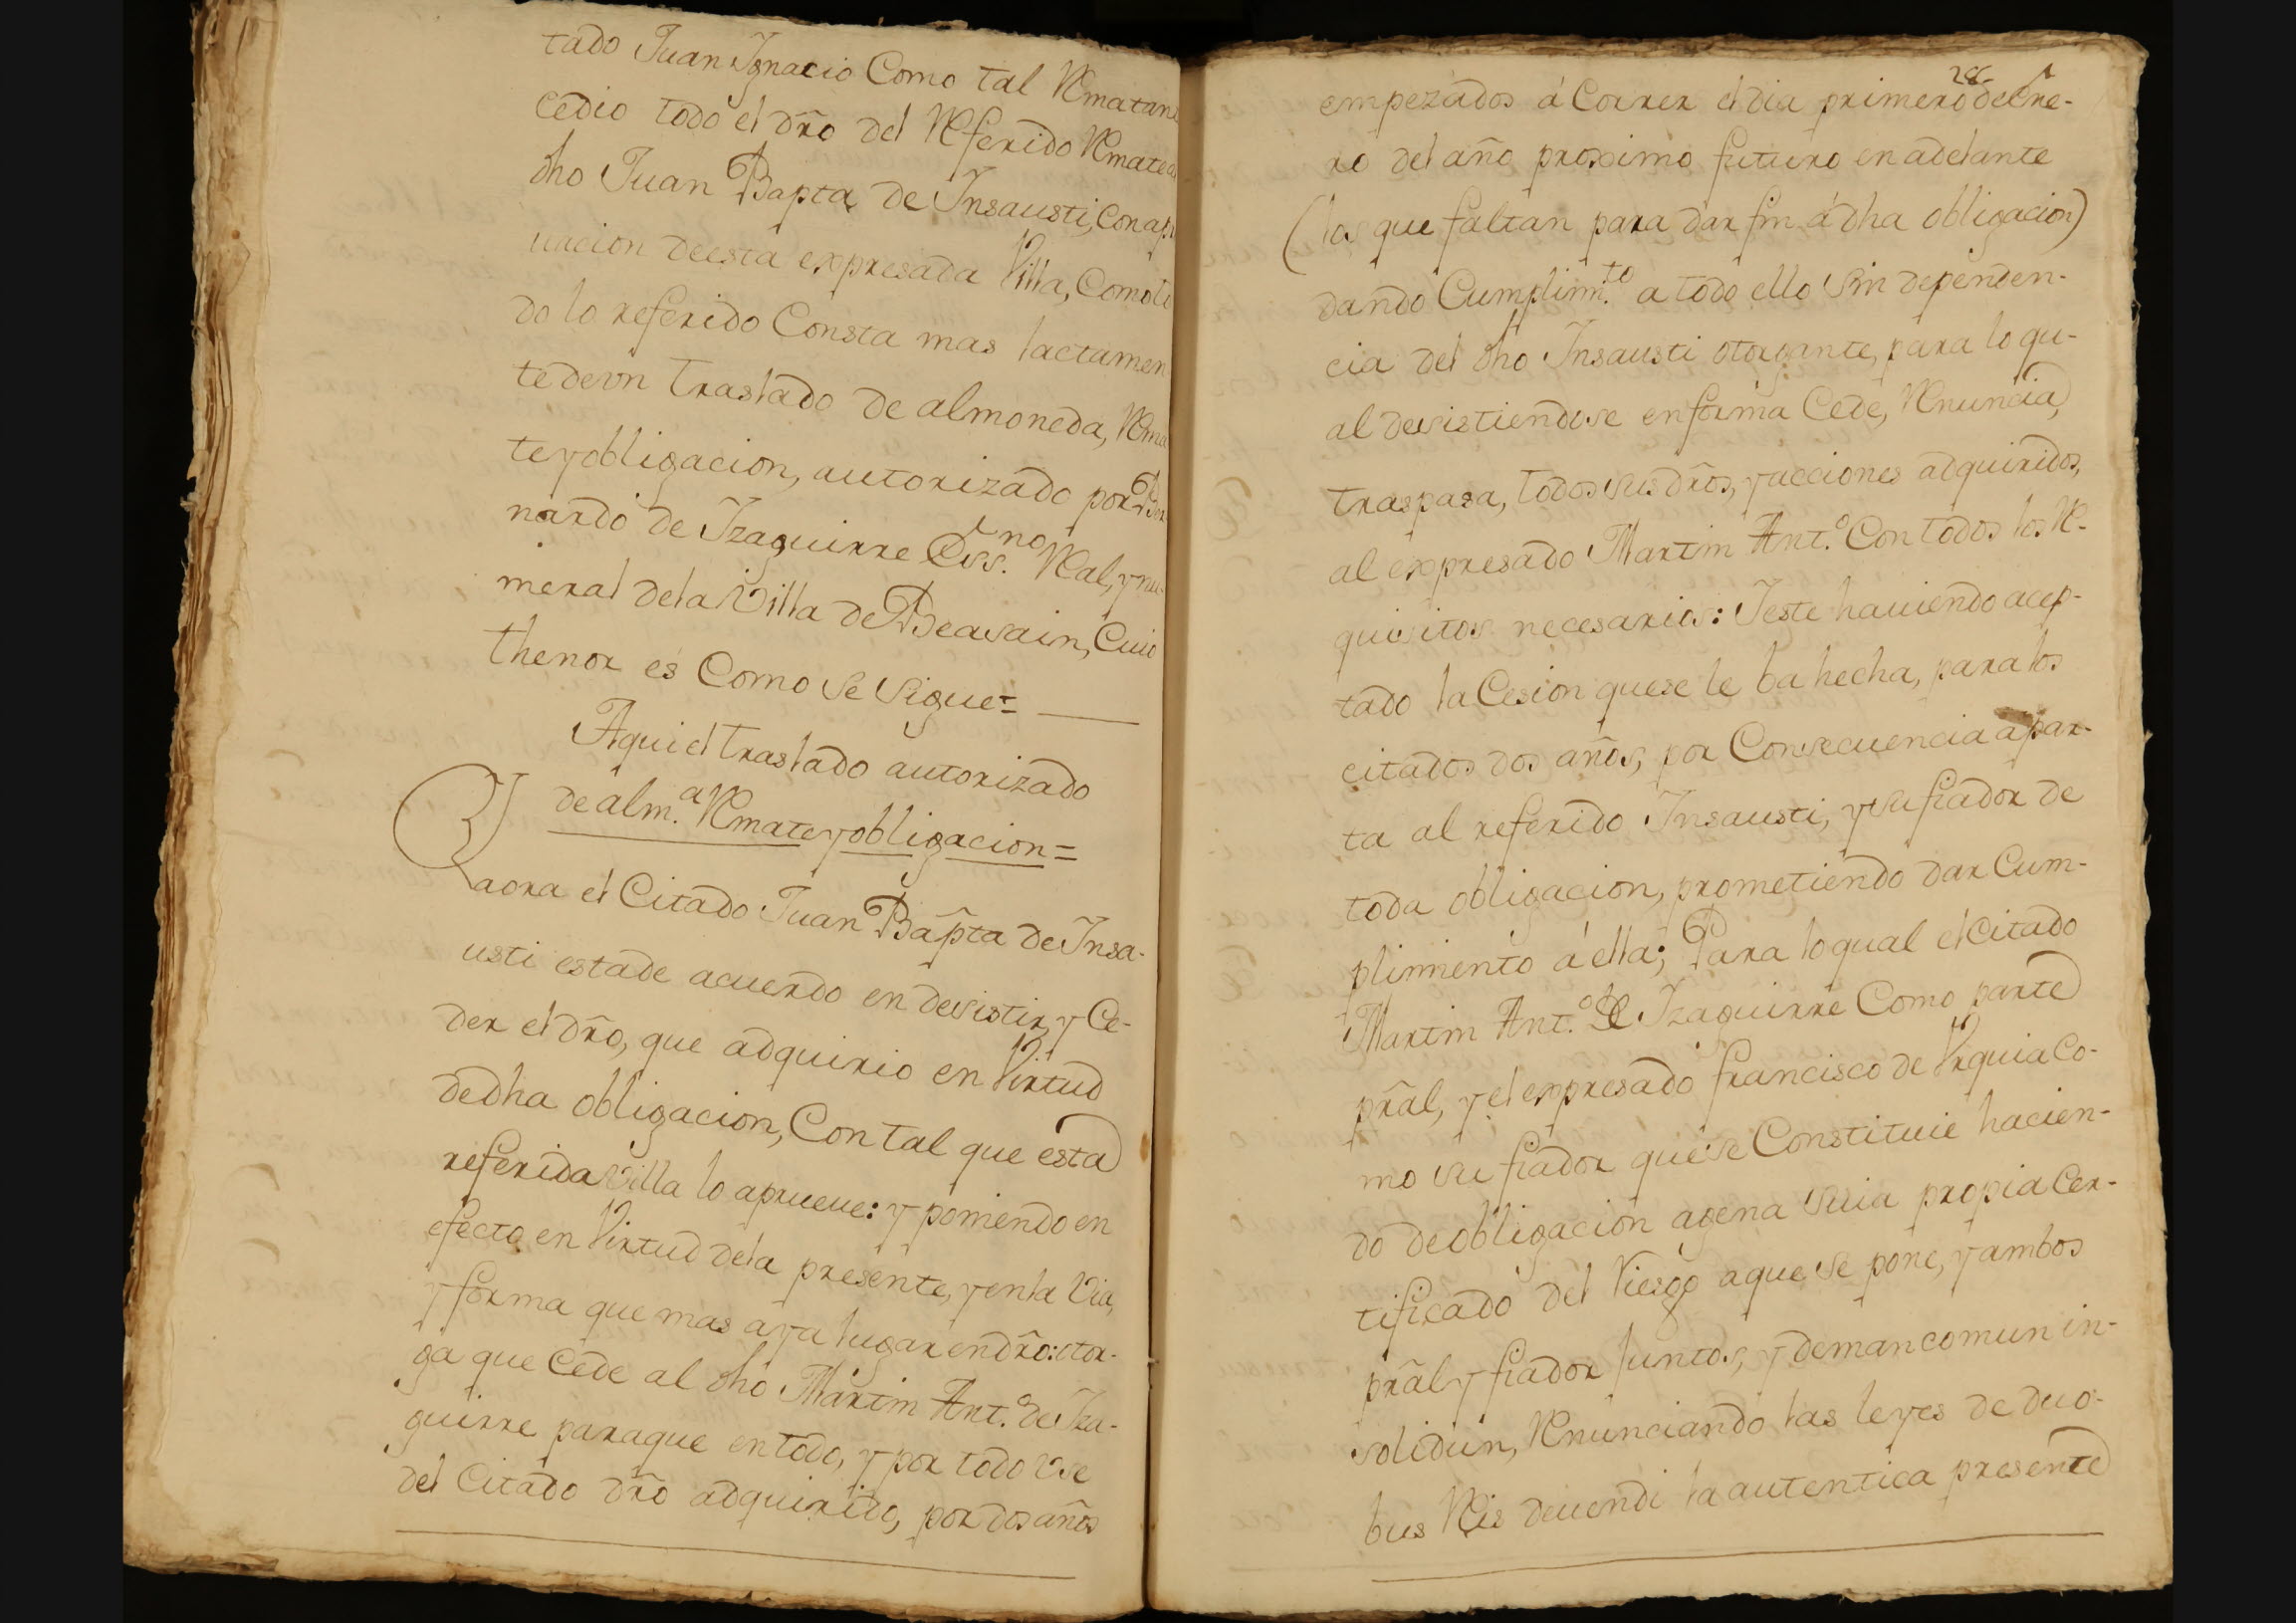 tado Juan Ygnacio Como tal Rematan
cedio todo el dr̃o del Referido Remate a
dho Juan Bapta de Insausti, Con ap
uacion deesta expresada Villa, Como to
do lo referido Consta mas lactamen
te de vn traslado de almoneda, Rema
te y obligacion, autorizado por Ber
nardo de Yzaguirre Ess.no Real, y nu-
meral dela Villa de Beasain, Cuio
thenor es Como se Sigue=
Aqui el traslado autorizado
de alm.a Remate y obligacion=
Y aora el Citado Juan Bap̃ta de Insa-
usti esta de acuerdo en desistir, y Ce-
der el dr̃o, que adquirio en Virtud
de dha obligacion, Con tal que esta
referida Villa lo aprueue: y poniendo en
efecto en Virtud dela presente, y en la Via,
y forma que mas aya lugar en dr̃o: otor-
ga que Cede al dho Martin Ant.o de Yza-
guirre paraque en todo, y por todo vse
del Citado dr̃o adquirido, por dos años
286
empezados á Correr el dia primero de Ene-
ro del año proximo futuro en adelante
(los que faltan para dar fin á dha obligacion)
dando Cumplim.to a todo ello sin dependen-
cia del dho Insausti otorgante, para lo qu-
al desistiendose en forma Cede, Renuncia,
traspasa, todos sus dr̃os, y acciones adquiridos,
al expresado Martin Ant.o Con todos los Re-
quisitos necesarios: Y este hauiendo acep-
tado la Cesion quese le ba hecha, para los
citados dos años, por Consecuencia apar-
ta al referido Insausti, y su fiador de
toda obligacion, prometiendo dar Cum-
plimiento á ella; Para lo qual el Citado
Martin Ant.o de Yzaguirre Como parte
pr̃al, y el expresado francisco de Vrquia Co-
mo su fiador que se Constituie hacien-
do de obligacion agena suia propia Cer-
tificado del Riesgo aque se pone, y ambos
pr̃al y fiador Juntos, y demancomun in-
solidun, Renunciando las leyes de duo-
bus Reis deuendi la autentica presente